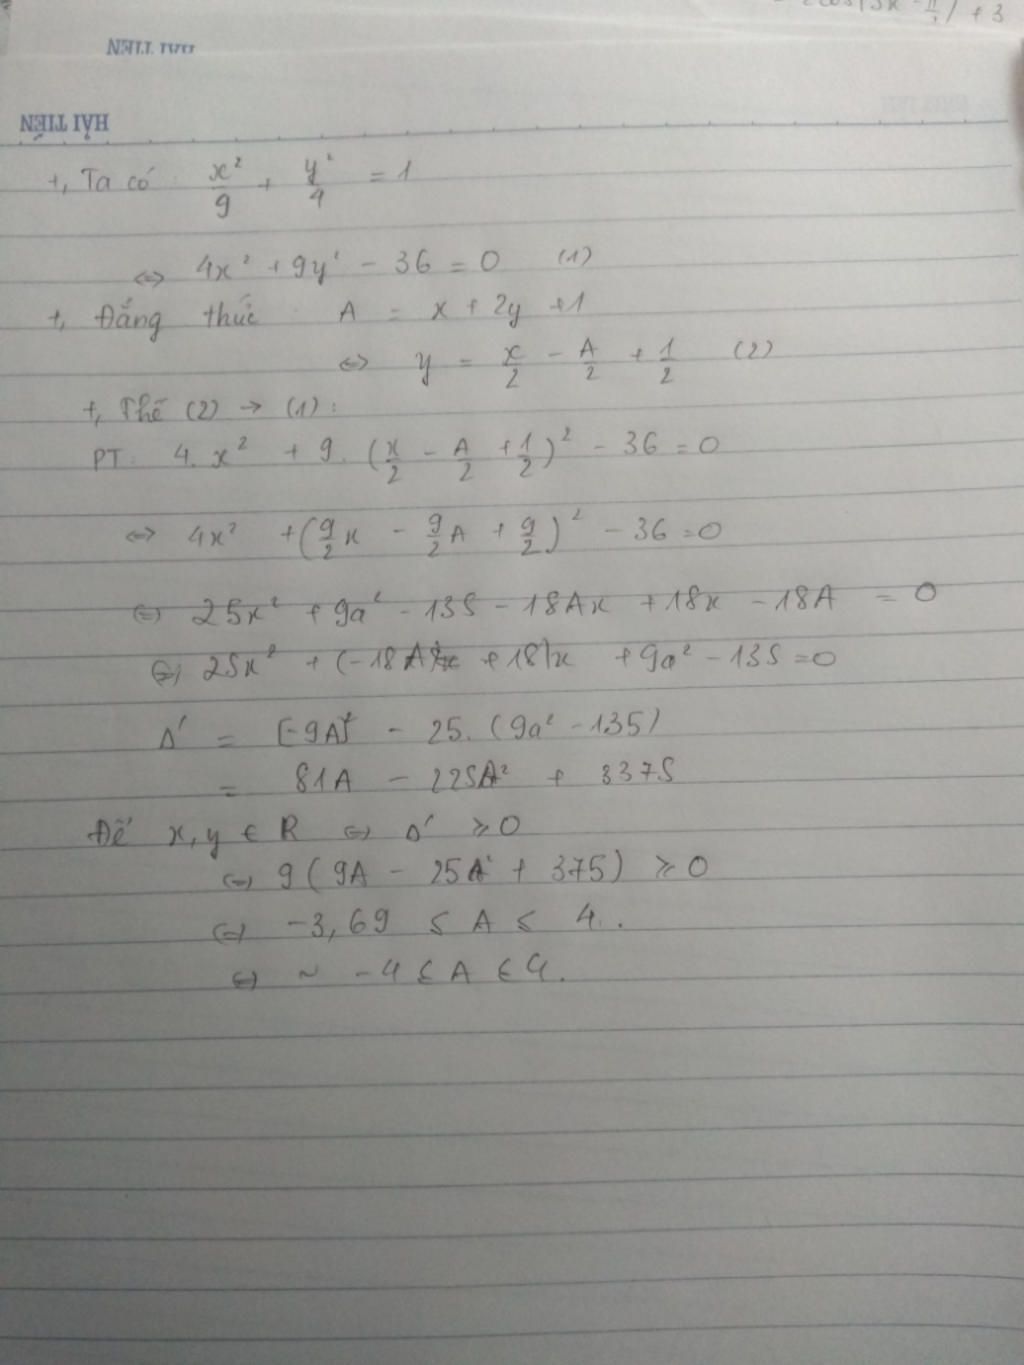 + 3
HẢI TIẾN
HẢI TIẾN
+, Ta có x²/9 + y²/4 = 1
⇔ 4x² + 9y² - 36 = 0 (1)
+, Đẳng thức : A = x + 2y + 1
⇔ y = x/2 - A/2 + 1/2 (2)
+, Thế (2) → (1) :
PT: 4.x² + 9.(x/2 - A/2 + 1/2)² - 36 = 0
⇔ 4x² + (9/2x - 9/2A + 9/2)² - 36 = 0
⇔ 25x² + 9a² - 135 - 18Ax + 18x - 18A = 0
⇔ 25x² + (-18A + 18)x + 9a² - 135 = 0
Δ' = [-9A]² - 25.(9a² - 135)
= 81A - 225A² + 3375
Để x, y ∈ R ⇔ Δ' ≥ 0
⇔ 9(9A - 25A² + 375) ≥ 0
⇔ -3,69 ≤ A ≤ 4..
⇔ ~ -4 ≤ A ≤ 4.